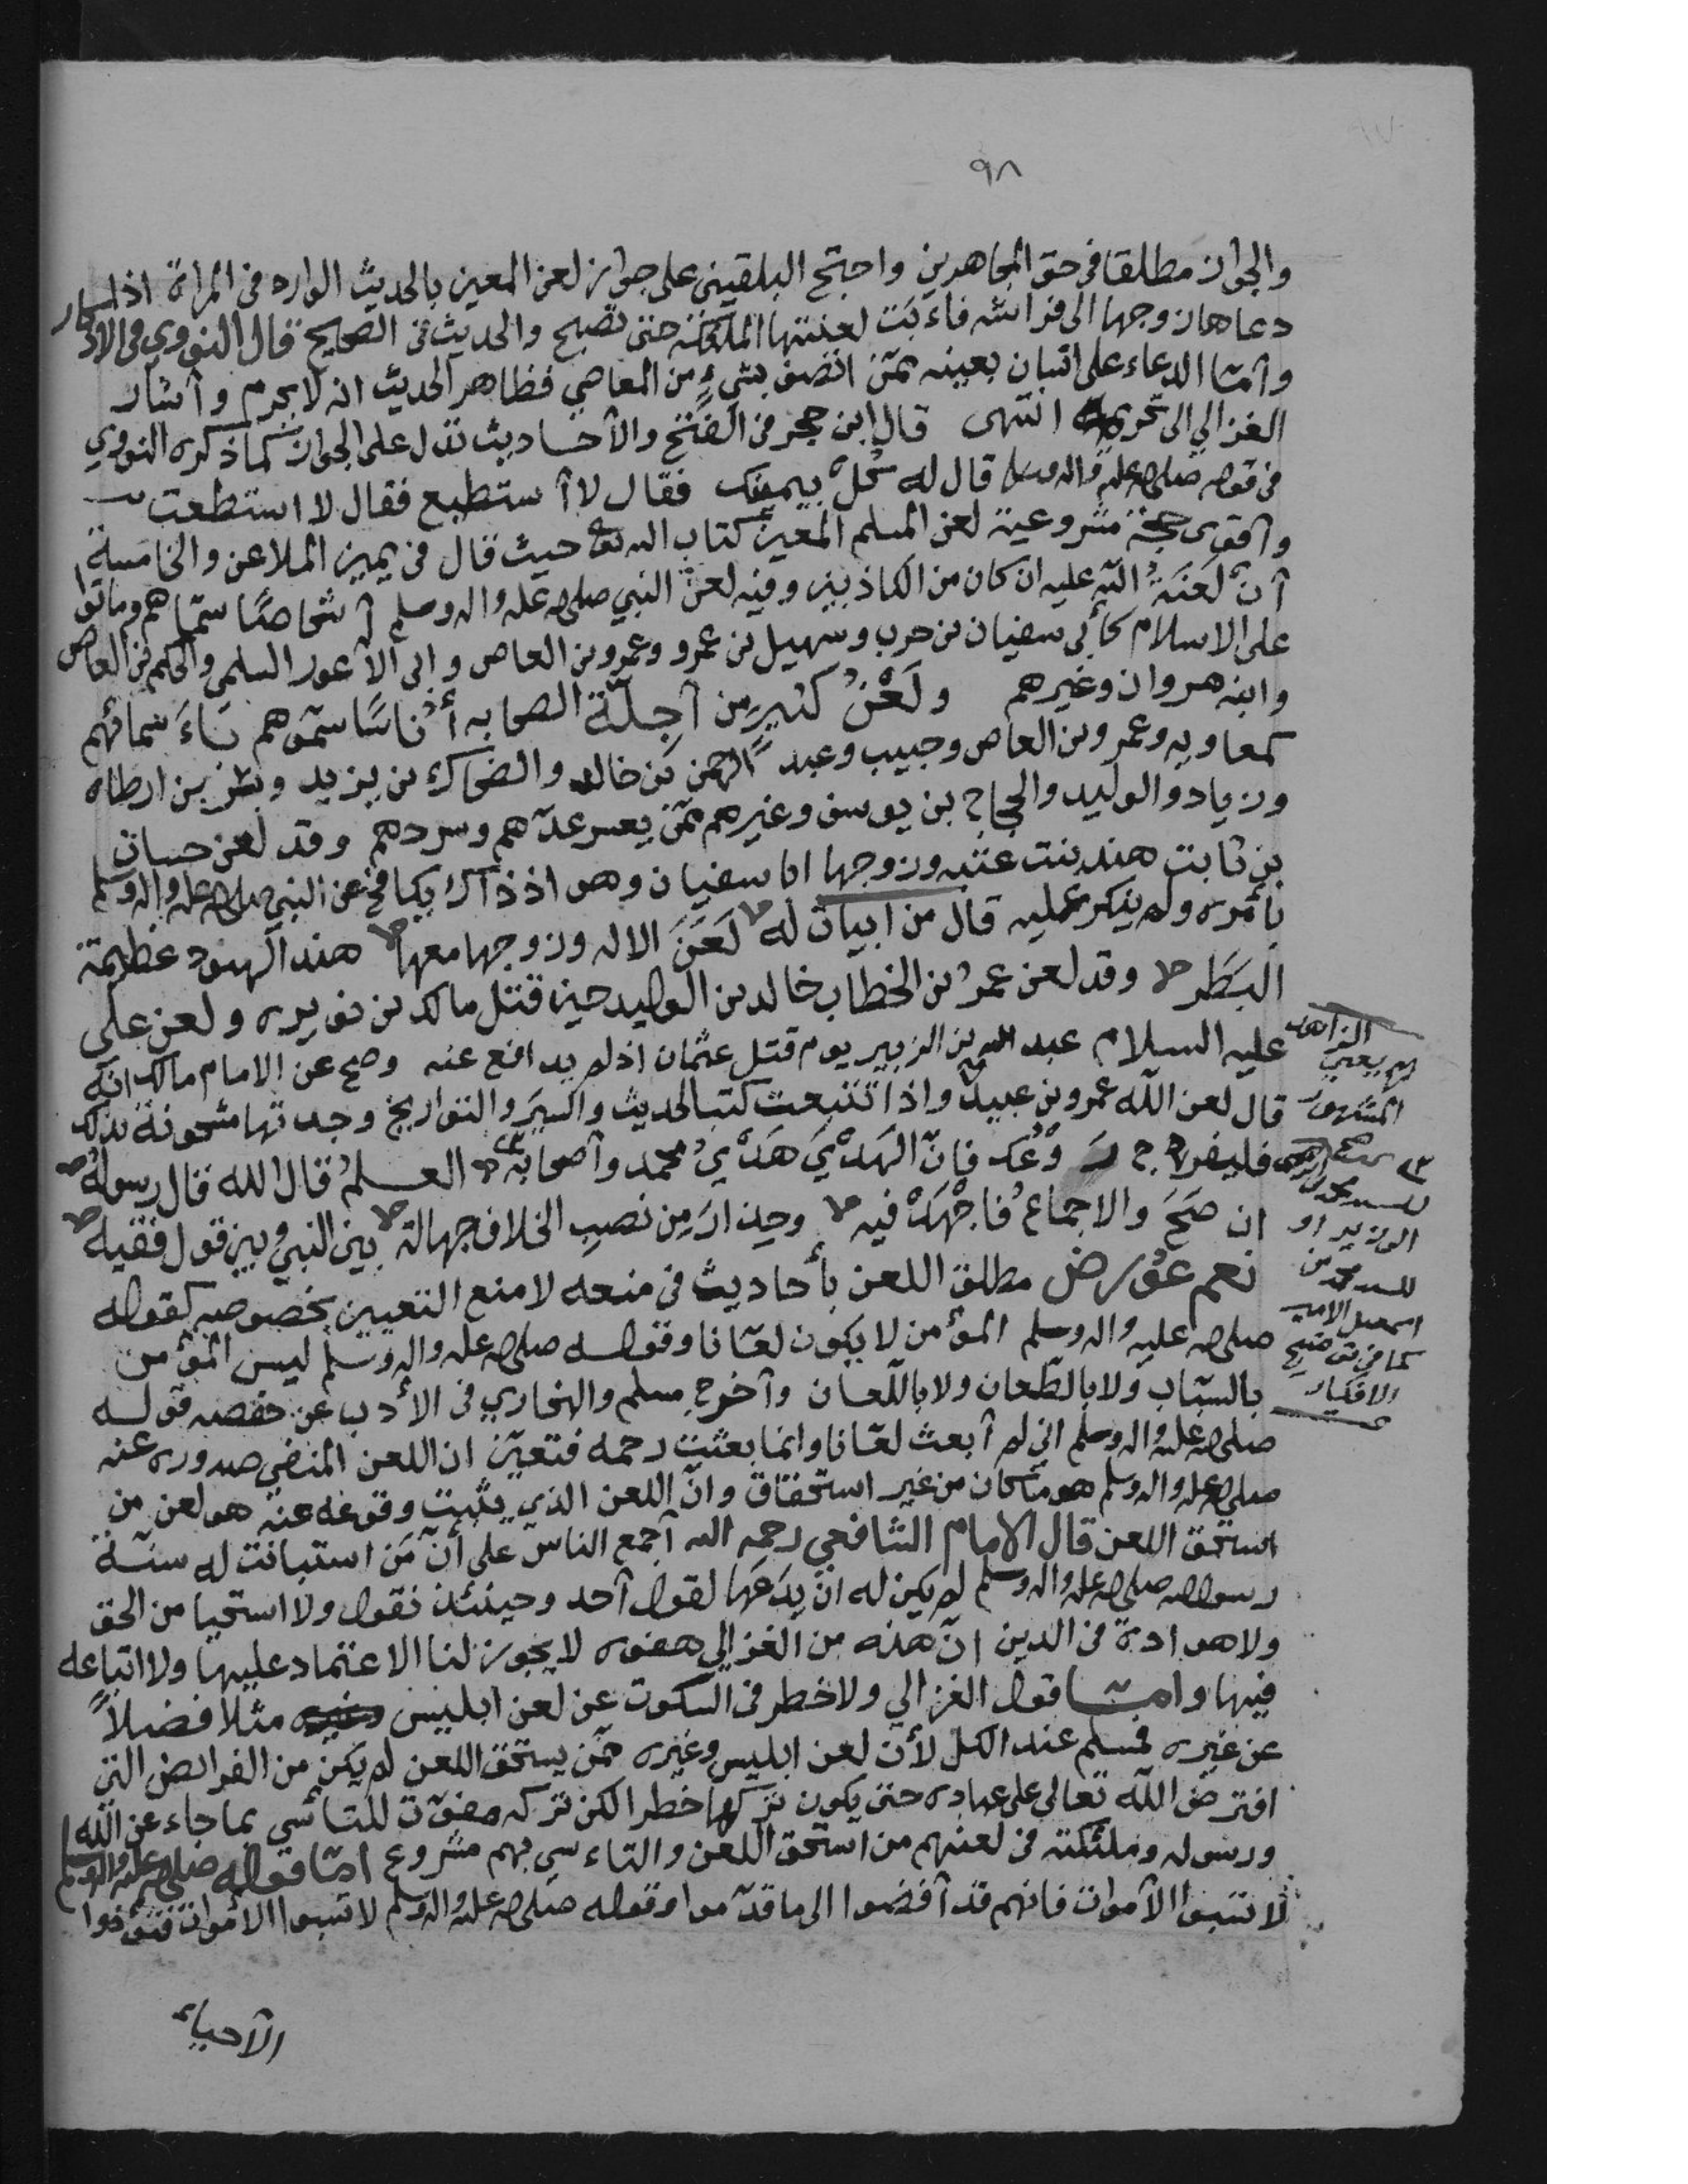 ٩٨
والجواز مطلقا في حق المجاهرين واحتج البلقيني على جواز لعن المعين بالحديث الوارد في المراة اذا
دعاها زوجها الى فراشه فاءبت لعنتها الملئكة حتى تصبح والحديث في الصحيح قال النووي في الاذكار
وأمّا الدعاء على انسان بعينه ممّن اتصف بشيءٍ من المعاصي فظاهر الحديث انه لا يحرم وأشار
الغزالي الى تحريمه انتهى قال ابن حجر في الفتح والأحاديث تدل على الجواز كما ذكره النووي
في قوله صلى الله عليه واله وسلم قال له كُلْ بيمينك فقال لا أستطيع فقال لا استطعت
وأقوى حجة مشروعية لعن المسلم المعين كتاب الله تعالى حيث قال في يمين الملاعن والخامسة
أنّ لَعْنَةُ اللّه عليه ان كان من الكاذبين وفيه لعن النبي صلى الله عليه واله وسلم أشخاصًا سمّاهم وماتوا
على الاسلام كأبي سفيان بن حرب وسهيل بن عمرو وعمرو بن العاص وابي الأعور السلمي والحكم بن العاص
وابنه مروان وغيرهم ولَعْنُ كثيرٍ من أجِلّة الصحابه أُناسًا سمّوهم باءَسمائهم
كمعاويه وعمرو بن العاص وحبيب وعبد الرحمن بن خالد والضحاك بن يزيد وبسر بن ارطاه
وزياد والوليد والحجاج بن يوسف وغيرهم ممّن يعسر عدّهم وسردهم وقد لعن حسان
بن ثابت هند بنت عتبه وزوجها ابا سفيان وهو اذ ذاك يكافح عن النبي صلى الله عليه واله وسلم
بأمره ولم ينكر عليه قال من ابيات له لَعَنَ الاله وزوجها معها هند الهنود عظيمة
البَظْر وقد لعن عمرُ بن الخطاب خالد بن الوليد حين قتل مالك بن نويره ولعن علي
عليه السلام عبد الله بن الزبير يوم قتل عثمان اذ لم يدافع عنه وصح عن الامام مالك انّه
قال لعن اللّه عمرو بن عبيد واذا تتبعت كتب الحديث والسِيَر والتواريخ وجدتها مشحونة بذلك
فليفرخ رَوْعُك فانّ الهَدْيَ هَدْيُ محمد وأصحابه العـلمُ قال الله قال رسوله
ان صَحَّ والاجماعُ فاجْهَدْ فيه وحِذارَ مِن نصبِ الخلاف جهالة بين النبي وبين قول فقيه
نعم عُورض مطلق اللعن بأحاديث في منعه لا منع التعيين بخصوصه كقوله
صلى الله عليه واله وسلم المؤمن لا يكون لعّانا وقوله صلى الله عليه واله وسلم ليس المؤمن
بالسبّاب ولا بالطّعان ولا باللّعان وأخرج مسلم والبخاري في الأدب عن حفصه قوله
صلى الله عليه واله وسلم اني لم أبعث لعّانا وانما بعثت رحمه فتعيّن ان اللعن المنفي صدوره عنه
صلى الله عليه واله وسلم هو ما كان من غير استحقاق وانّ اللعن الذي يثبت وقوعه عنه هو لعن من
استحق اللعن قال الامام الشافعي رحمه الله أجمع الناس على أنّ مَن استبانت له سنّة
رسول الله صلى الله عليه واله وسلم لم يكن له ان يدَعَها لقول أحد وحينئذ نقول ولا استحيا من الحق
ولا هوادة في الدين انّ هذه من الغزالي هفوه لا يجوز لنا الاعتماد عليها ولا اتباعه
فيها وامّـا قول الغزالي ولا خطر في السكوت عن لعن ابليس مثلًا فضلًا
عن غيره فمسلم عند الكل لأن لعن ابليس وغيره ممّن يستحق اللعن لم يكن من الفرائض التي
افترض اللّه تعالى على عباده حتى يكون تركها خطرا لكن تركه مفوّت للتأسّي بما جاء عن اللّه
ورسوله وملئكته في لعنهم من استحق اللعن والتاءسي بهم مشروع امّا قوله صلى الله عليه واله وسلم
لا تسبوا الأموات فانهم قد أفضوا الى ما قدّموا وقوله صلى الله عليه واله وسلم لا تسبوا الأموات فتؤذوا
الأحياء
الزاهد
المشهور
الوزير او
للسيد محمد بن
اسمعيل الامير
كما في توضيح
الافكار